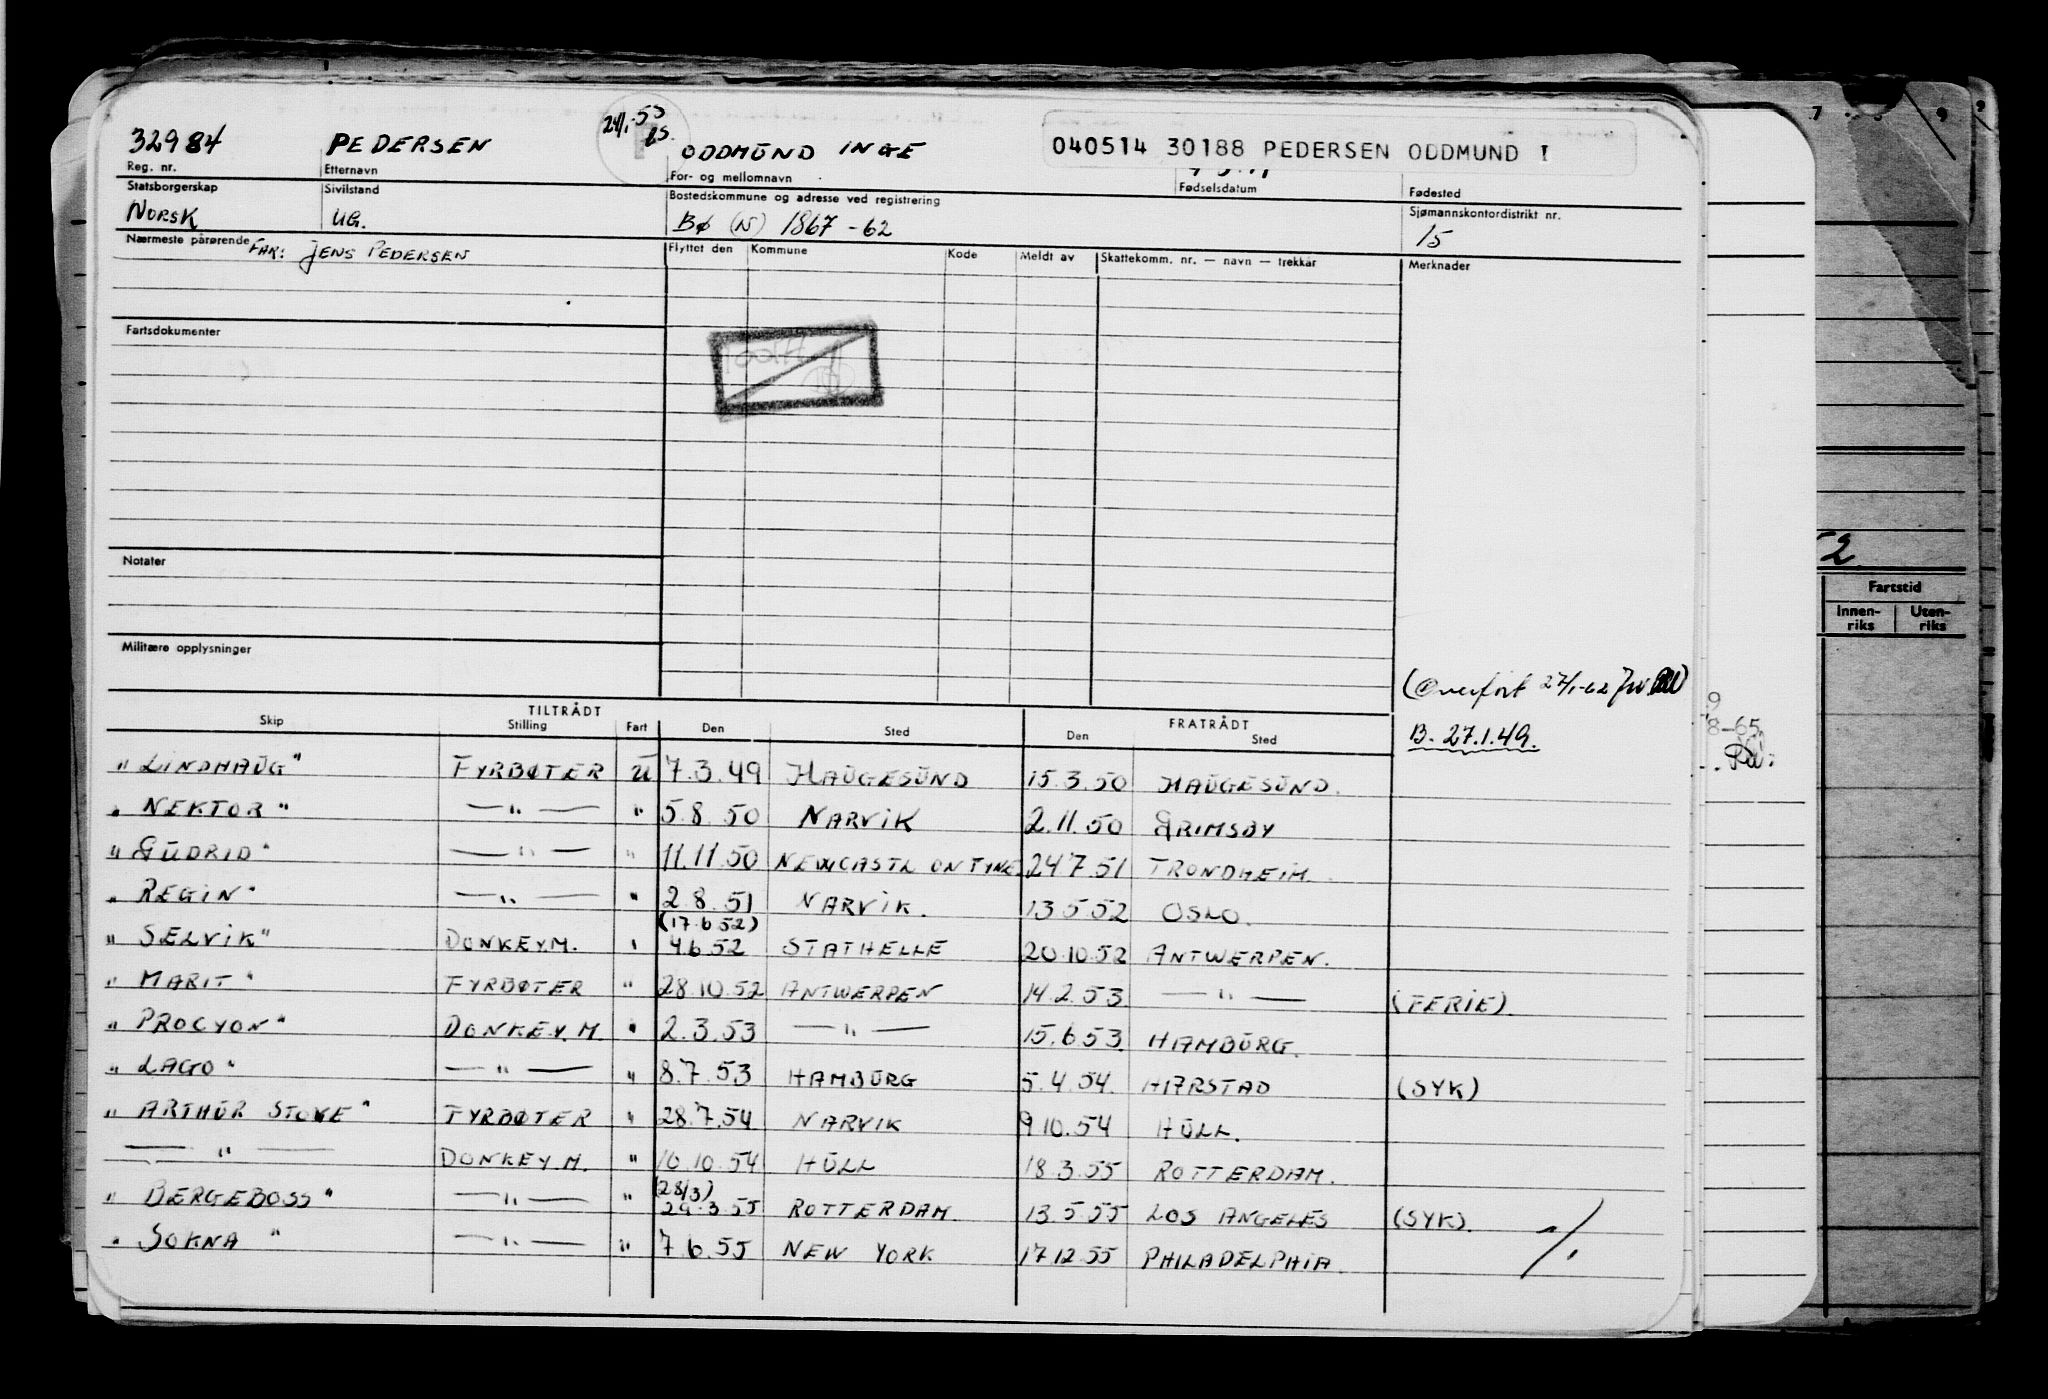 32984 PEDERSEN 24/1-53 ES. ODDMUND INGE 040514 30188 PEDERSEN ODDMUND I
Reg. nr. Etternavn For- og mellomnavn Fødselsdatum Fødested
Statsborgerskap Sivilstand Bostedskommune og adresse ved registrering Sjømannskontordistrikt nr.
NORSK UG. BØ (N) 1867-62 15
Nærmeste pårørende FAR: JENS PEDERSEN Flyttet den Kommune Kode Meldt av Skattekomm. nr. — navn — trekkår Merknader
Fartsdokumenter
Notater
Militære opplysninger
(Overført 27/1-62
TILTRÅDT FRATRÅDT
Skip Stilling Fart Den Sted Den Sted
B. 27.1.49.
"LINDHAUG" FYRBØTER U 7.3.49 HAUGESUND 15.3.50 HAUGESUND.
"NEKTOR" —"— " 5.8.50 NARVIK 2.11.50 GRIMSBY
"GUDRID" —"— " 11.11.50 NEWCASTL ON TYNE. 24.7.51 TRONDHEIM.
"REGIN" —"— " 2.8.51 NARVIK. 13.5.52 OSLO.
(17.6.52)
"SELVIK" DONKEY.M. " 4.6.52 STATHELLE 20.10.52 ANTWERPEN.
"MARIT" FYRBØTER " 28.10.52 ANTWERPEN 14.2.53 —"— (FERIE).
"PROCYON" DONKEY.M. " 2.3.53 —"— 15.6.53 HAMBURG.
"LAGO" —"— " 8.7.53 HAMBURG 5.4.54. HARSTAD (SYK)
"ARTHUR STOVE" FYRBØTER " 28.7.54 NARVIK 9.10.54 HULL.
—"— DONKEY.M. " 10.10.54 HULL 18.3.55 ROTTERDAM.
(28/3)
"BERGEBOSS" —"— " 29.3.55 ROTTERDAM 13.5.55 LOS ANGELES (SYK).
"SOKNA" —"— " 7.6.55 NEW YORK 17.12.55 PHILADELPHIA. ./.
7 9
52
Fartstid
Innen-riks Uten-riks
9
8-65